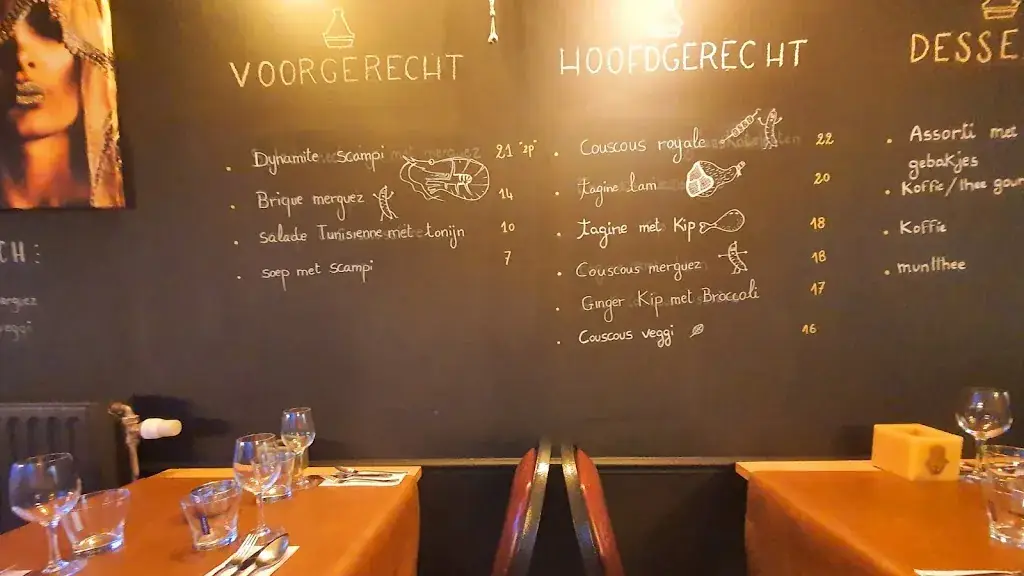 VOORGERECHT
Dynamite scampi 21 "2p"
Brique merguez 14
salade Tunisienne met tonijn 10
soep met scampi 7
HOOFDGERECHT
Couscous royale 22
tagine Lam 20
tagine met Kip 18
Couscous merguez 18
Ginger Kip met Broccoli 17
Couscous veggi 16
DESSE
Assorti met
gebakjes
Koffie/thee gour
Koffie
muntthee
CH:
erguez
veggi